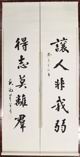 讓人非我弱
得志莫離群